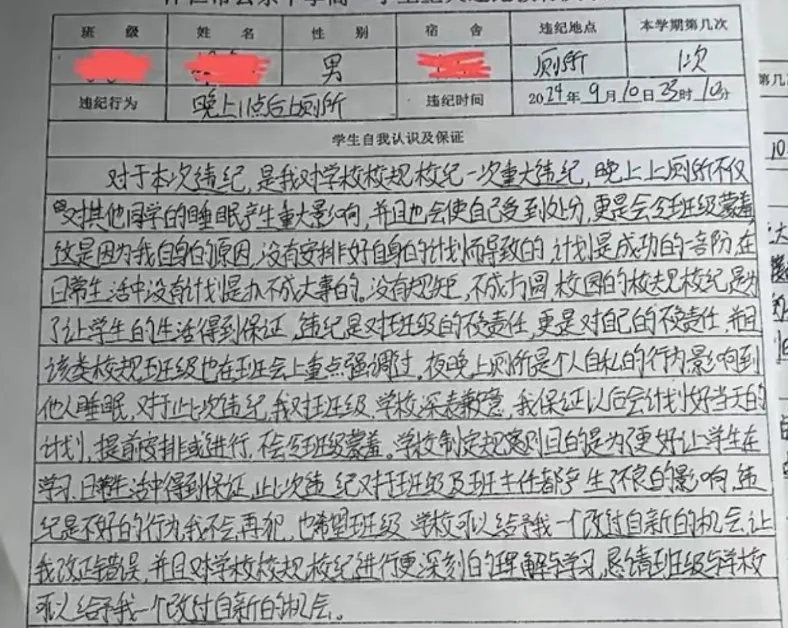 班 级 姓 名 性 别 宿 舍 违纪地点 本学期第几次
男 厕所 1次
违纪行为 晚上11点后上厕所 违纪时间 2024年9月10日23时10分
学生自我认识及保证
对于本次违纪,是我对学校校规校纪一次重大违纪,晚上上厕所不仅
对其他同学的睡眠产生重大影响,并且也会使自己受到处分,更是会令班级蒙羞
这是因为我自身的原因,没有安排好自身的计划而导致的,计划是成功的一部份,在
日常生活中没有计划是办不成大事的。没有规矩,不成方圆,校园的校规校纪是为
了让学生的生活得到保证,违纪是对班级的不负责任,更是对自己的不负责任,并且
该类校规班级也在班会上重点强调过。夜晚上厕所是个人自私的行为影响到
他人睡眠,对于此次违纪,我对班级、学校深表歉意,我保证以后会计划好当天的
计划,提前安排或进行,不会令班级蒙羞。学校制定规章则目的是为了更好让学生在
学习、日常生活中得到保证,此次违纪对于班级及班主任都产生了不良的影响,违
纪是不好的行为,我不会再犯,也希望班级、学校可以给予我一个改过自新的机会,让
我改正错误,并且对学校校规校纪进行更深刻的理解与学习,恳请班级与学校
可以给予我一个改过自新的机会。
第几
10